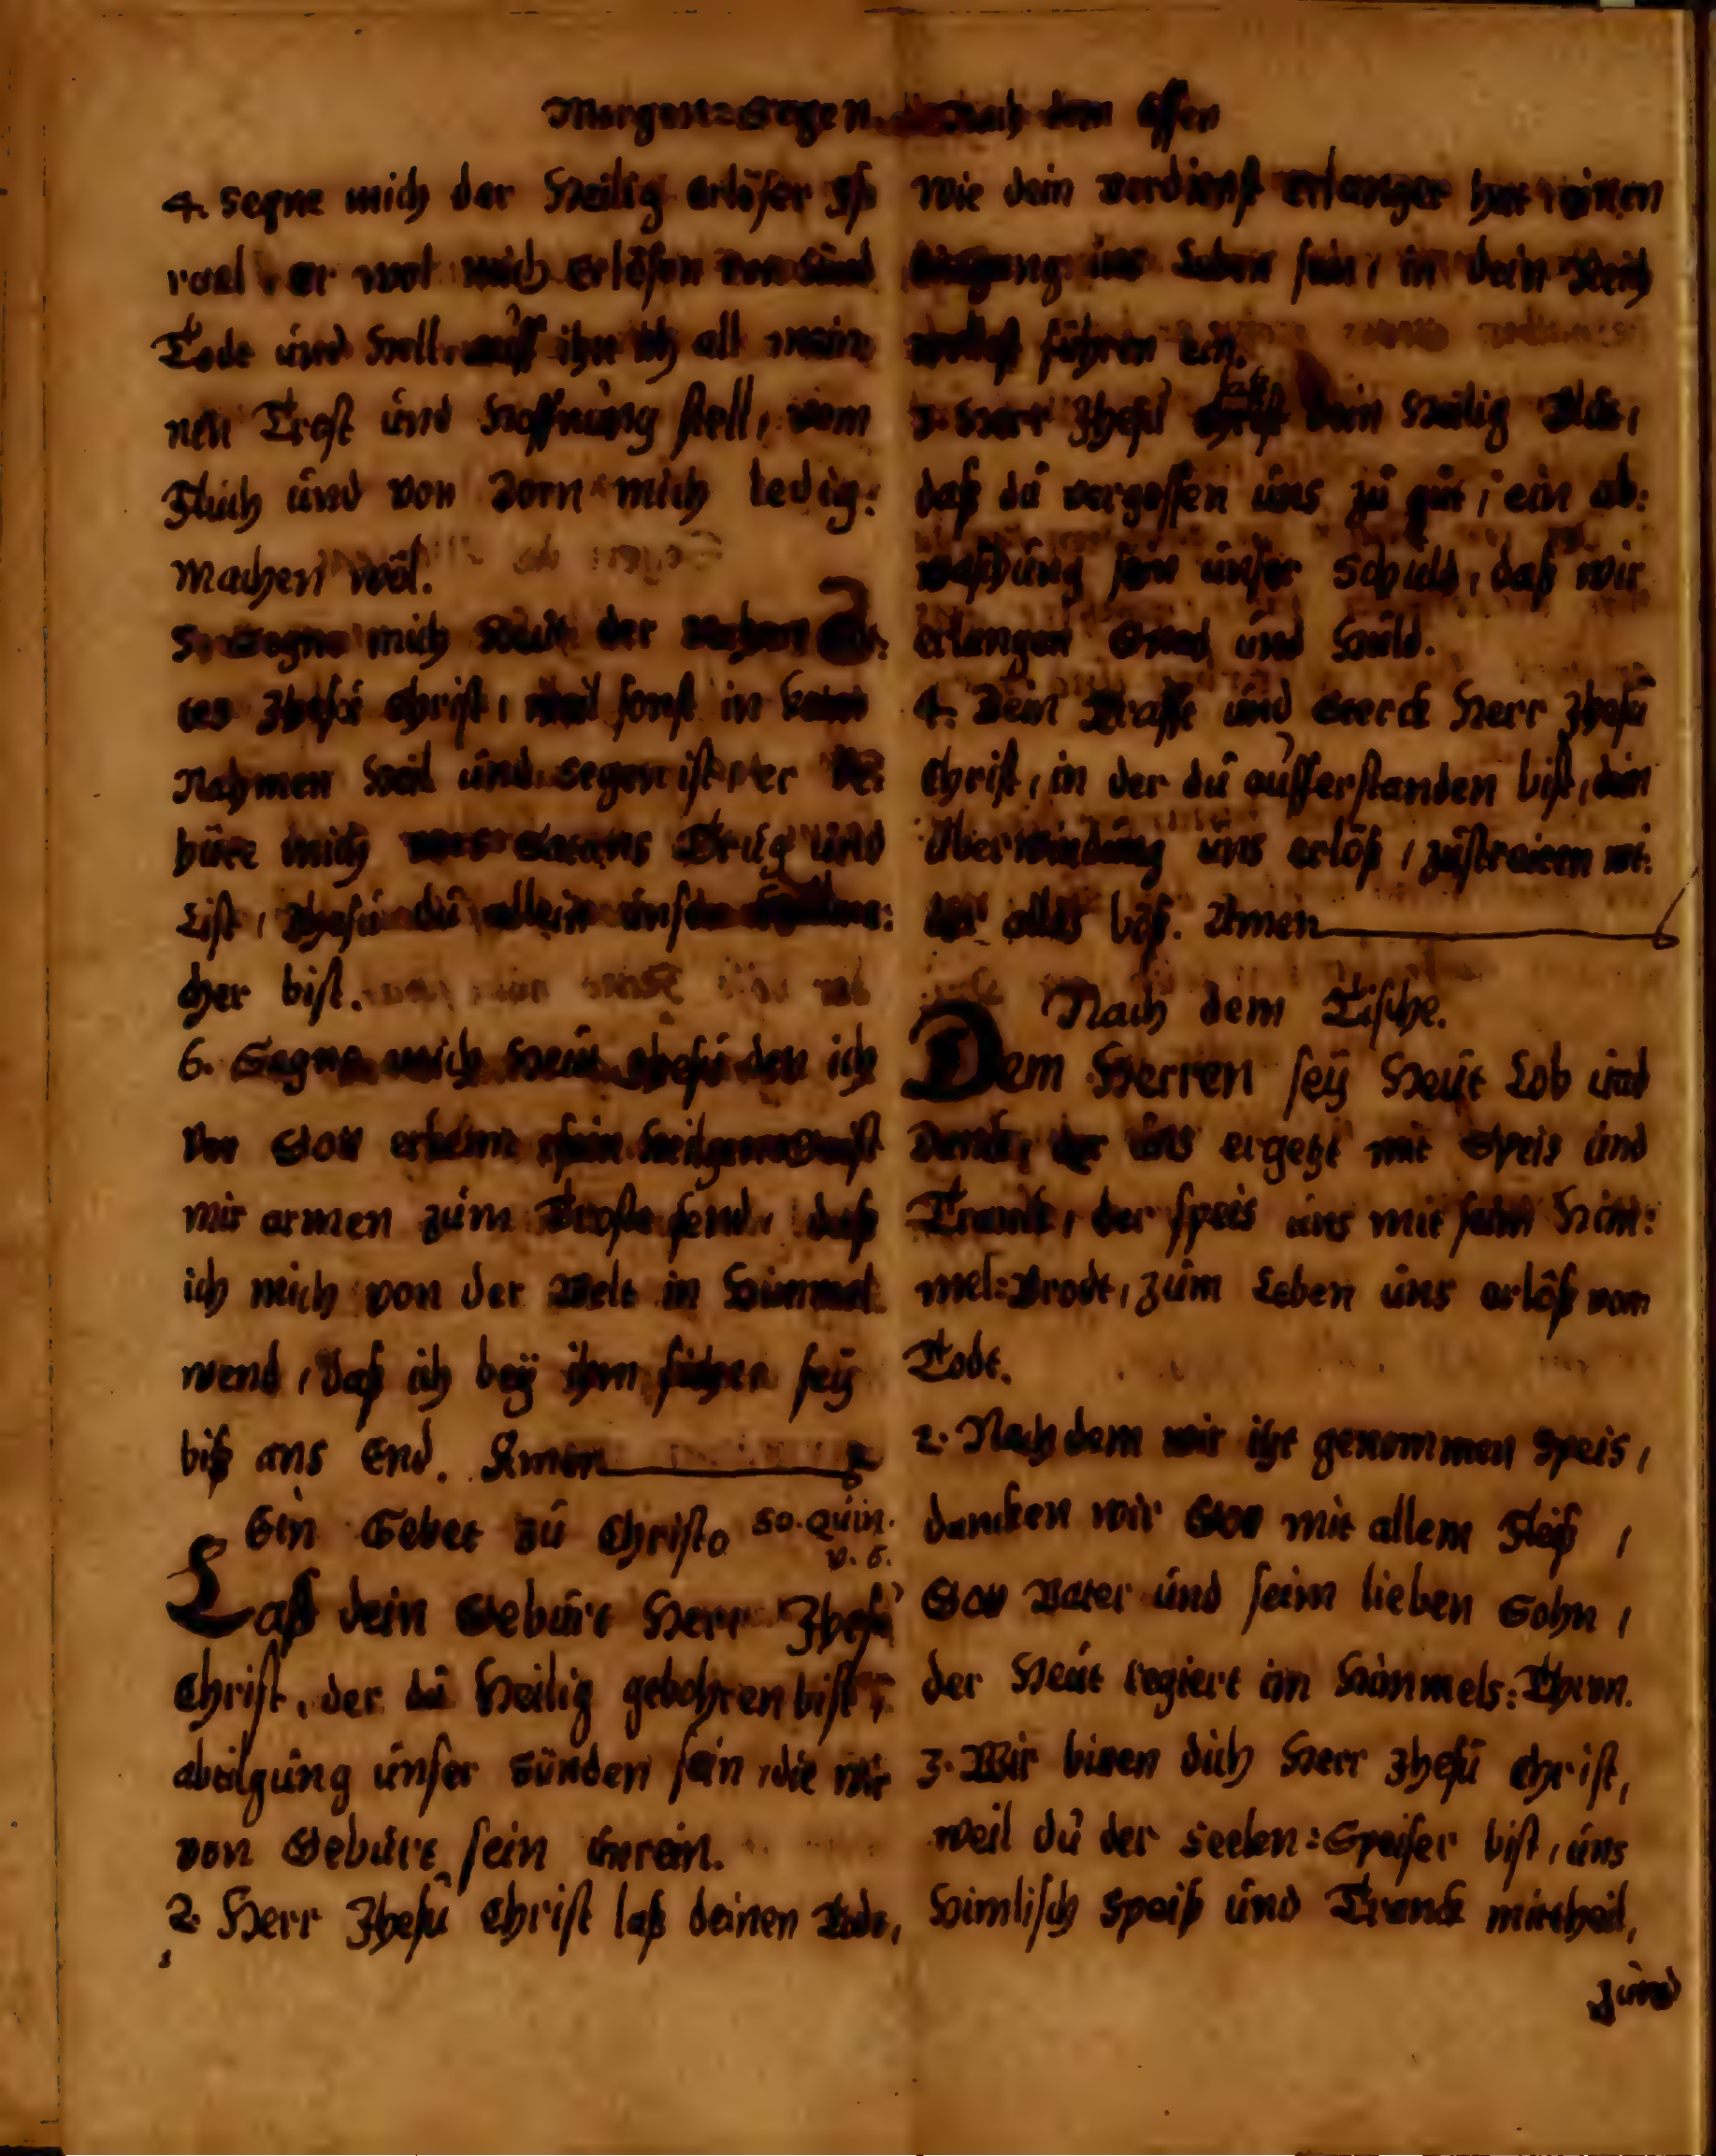 Morgen=Segen. Nach dem Essen
4. Segne mich der Heilig Erlöser Is
rael, er wol mich erlösen von Sünd
Tode und Hell, auff ihn ich all mein
nen Trost und Hoffnung stell, vom
Fluch und von Zorn mich ledig:
machen wöl.
5. Segne mich Heut der Nahmen Go:
tes Jhesu Christ, weil sonst in keim
Nahmen Heil und Segen ist, er be
hüte mich vors Satans Trug und
List, Jhesu du allein unser
cher bist.
6. Segne mich Heut Jhesu den ich
vor Gott erkenn sein Heilgenn Geist
mir armen zum Troste send, daß
ich mich von der Welt in Himmel
wend, daß ich bey ihm sicher sey
biß ans End. Amen
Ein Gebet zu Christo so. quin.
v. 6.
Laß dein Geburt Herr Jhesu
Christ, der du Heilig gebohren bist,
abtilgung unser Sünden sein, die wir
von Geburt sein unrein.
2. Herr Jhesu Christ laß deinen Tode,
wie dein verdienst erlanget hat, einen
Eingang ins Leben sein, in dein Reich
wollest führen ein.
3. Herr Jhesu laß dein Heilig Blut,
daß du vergossen uns zu gut, ein ab:
waschung sein unser Schuld, daß wir
erlangen Gnad und Huld.
4. Dein Krafft und Sterck Herr Jhesu
Christ, in der du aufferstanden bist, dein
Überwindung uns erlöß, zustraiten wi:
der alles böß. Amen
Nach dem Tische.
Dem Herren sey Heut Lob und
Danck, der uns ergetzt mit Speis und
Tranck, der speis uns mit seim Him:
mel=Brodt, zum Leben uns erlöß vom
Todt.
2. Nach dem wir itzt genommen Speis,
dancken wir Gott mit allem Fleiß,
Gott Vater und seim lieben Sohn,
der Heut regiert im Himmels=Thron.
3. Wir biten dich Herr Jhesu Christ,
weil du der Seelen=Speiser bist, uns
Himlisch Speiß und Tranck mittheil,
zund